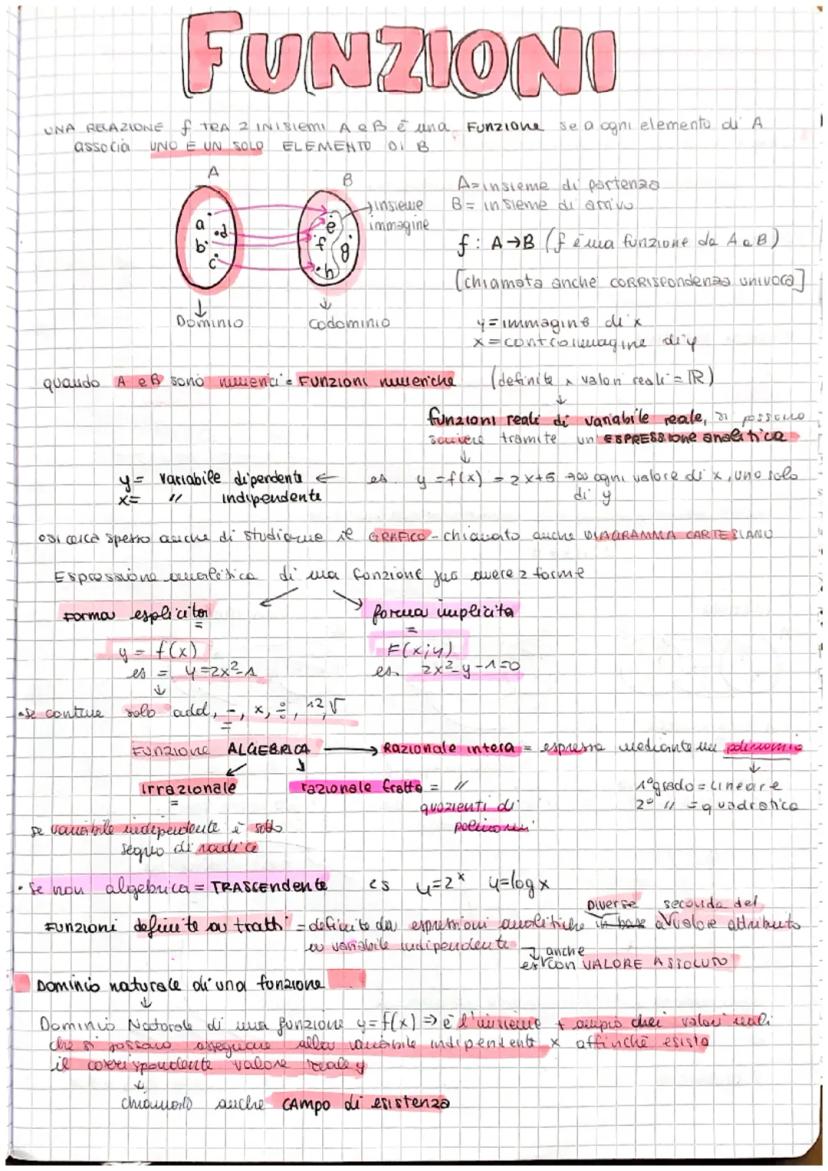 FUNZIONI
UNA RELAZIONE f TRA 2 INISIEMI A e B è una Funzione se a ogni elemento di A
associa UNO E UN SOLO ELEMENTO DI B
A
B
a
d
b
c
e
f
g
h
insieme
immagine
Dominio
codominio
A= insieme di partenza
B= insieme di arrivo
f: A→B (f è una funzione da A a B)
[chiamata anche corrispondenza univoca]
y= immagine di x
x= controimmagine di y
quando A e B sono numerici = Funzioni numeriche (definite x valori reali = ℝ)
↓
funzioni reali di variabile reale, si possono
scrivere tramite un' ESPRESSIONE analitica
↓
y= variabile dipendente ← es. y=f(x) = 2x+5 → ogni valore di x, uno solo
x= " indipendente di y
si cerca spesso anche di studiarne il GRAFICO - chiamato anche DIAGRAMMA CARTESIANO
Espressione analitica di una funzione può avere 2 forme
Forma esplicita
forma implicita
y = f(x)
F(x;y)
es = y=2x²-1
es. 2x²-y-1=0
↓
•se contiene solo add, -, x, ÷, ^2, √
Funzione ALGEBRICA → Razionale intera = espressa mediante un polinomio
↓
irrazionale
razionale fratta = "
1°grado = lineare
quozienti di
2° " = quadratica
polinomi
se variabile indipendente è sotto
segno di radice
• Se non algebrica = TRASCENDENTE es y=2ˣ y=log x
Diverse seconda del
Funzioni definite a tratti = definite da espressioni analitiche in base a valore attribuito
a variabile indipendente
↓ anche
es con VALORE ASSOLUTO
Dominio naturale di una funzione
↓
Dominio Naturale di una funzione y=f(x) ⇒ è l'insieme + ampio dei valori reali
che si possono assegnare alla variabile indipendente x affinchè esista
il corrispondente valore reale y
↓
chiamato anche campo di esistenza